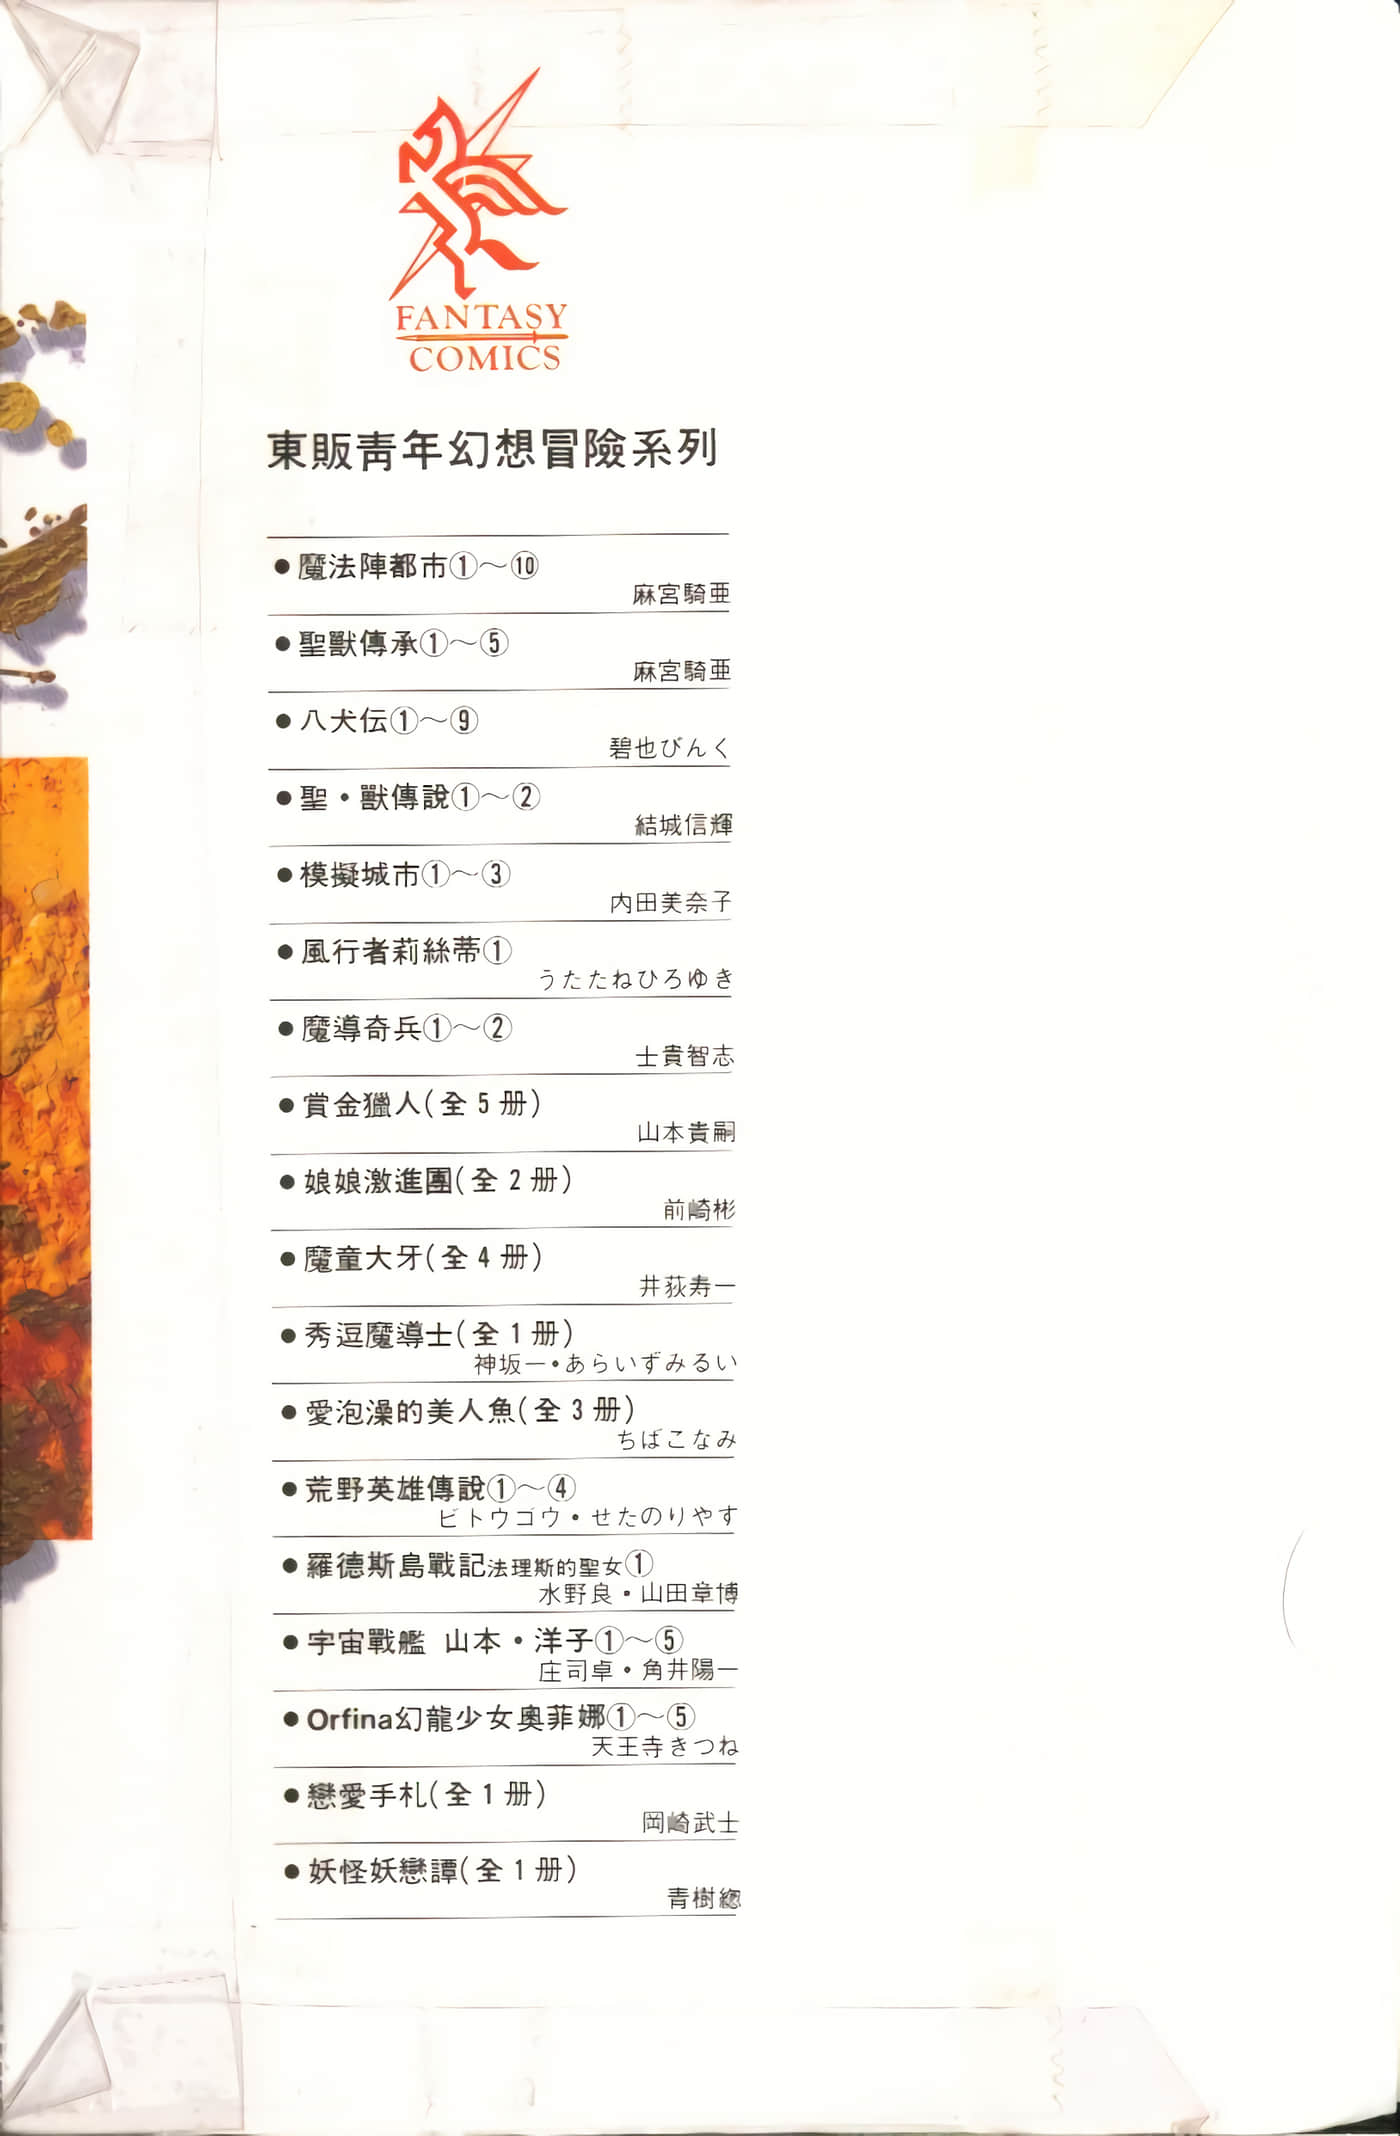 FANTASY
COMICS
東販靑年幻想冒險系列
●魔法陣都市①～⑩
麻宮騎亜
●聖獸傳承①～⑤
麻宮騎亜
●八犬伝①～⑨
碧也びんく
●聖・獸傳說①～②
結城信輝
●模擬城市①～③
内田美奈子
●風行者莉絲蒂①
うたたねひろゆき
●魔導奇兵①～②
士貴智志
●賞金獵人(全5册)
山本貴嗣
●娘娘激進團(全2册)
前崎彬
●魔童大牙(全4册)
井荻寿一
●秀逗魔導士(全1册)
神坂一・あらいずみるい
●愛泡澡的美人魚(全3册)
ちばこなみ
●荒野英雄傳說①～④
ビトウゴウ・せたのりやす
●羅德斯島戰記法理斯的聖女①
水野良・山田章博
●宇宙戰艦 山本・洋子①～⑤
庄司卓・角井陽一
●Orfina幻龍少女奧菲娜①～⑤
天王寺きつね
●戀愛手札(全1册)
岡崎武士
●妖怪妖戀譚(全1册)
青樹緫